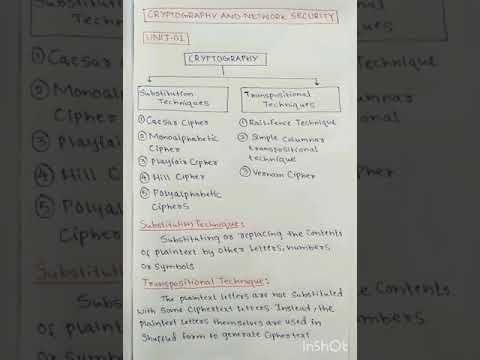 CRYPTOGRAPHY AND NETWORK SECURITY
UNIT-01
CRYPTOGRAPHY
Substitution
Techniques
① Caesar Cipher
② Monoalphabetic
Cipher
③ Playfair Cipher
④ Hill Cipher
⑤ Polyalphabetic
Ciphers
Transpositional
Techniques
① Rail-Fence Technique
② Simple Columnar
transpositional
technique
③ Vernam Cipher
Substitution Technique:
Substituting or replacing the contents
of plaintext by other letters, numbers
or symbols
Transpositional Technique:
The plaintext letters are not substituted
with some Ciphertext letters. Instead, the
plaintext letters themselves are used in
Shuffled form to generate Ciphertext
InShOt